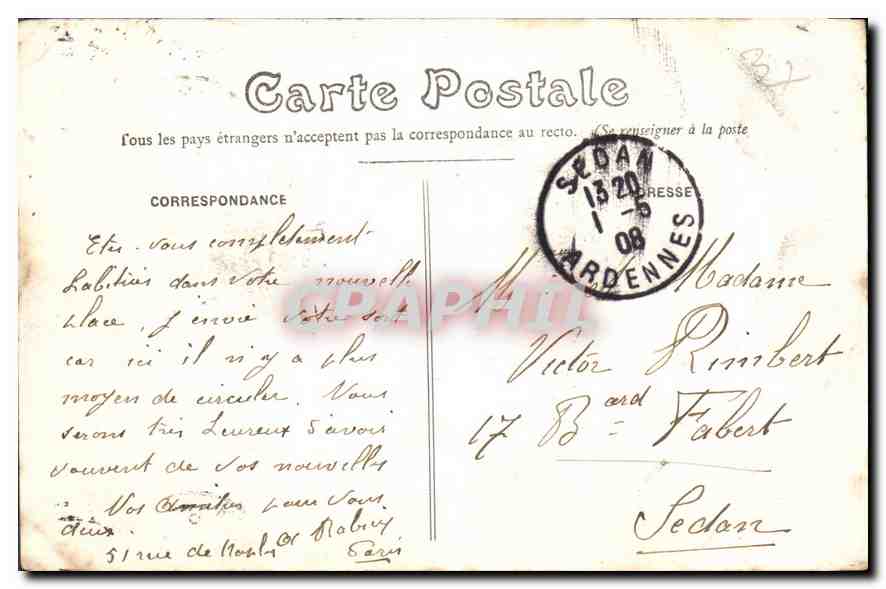 Carte Postale
Tous les pays étrangers n'acceptent pas la correspondance au recto. (Se renseigner à la poste
CORRESPONDANCE
Etes-vous completement
habitués dans votre nouvelle
place, j'envie votre sort
car ici il n'y a plus
moyen de circuler. Nous
serons très heureux d'avoir
souvent de vos nouvelles
Nos amitiés pour vous
deux.
51 rue de
Paris
SEDAN
13 20
1 -5
08
ARDENNES
ADRESSE
Madame
Victor Rimbert
17 Bard Fabert
Sedan
CPAPHIL